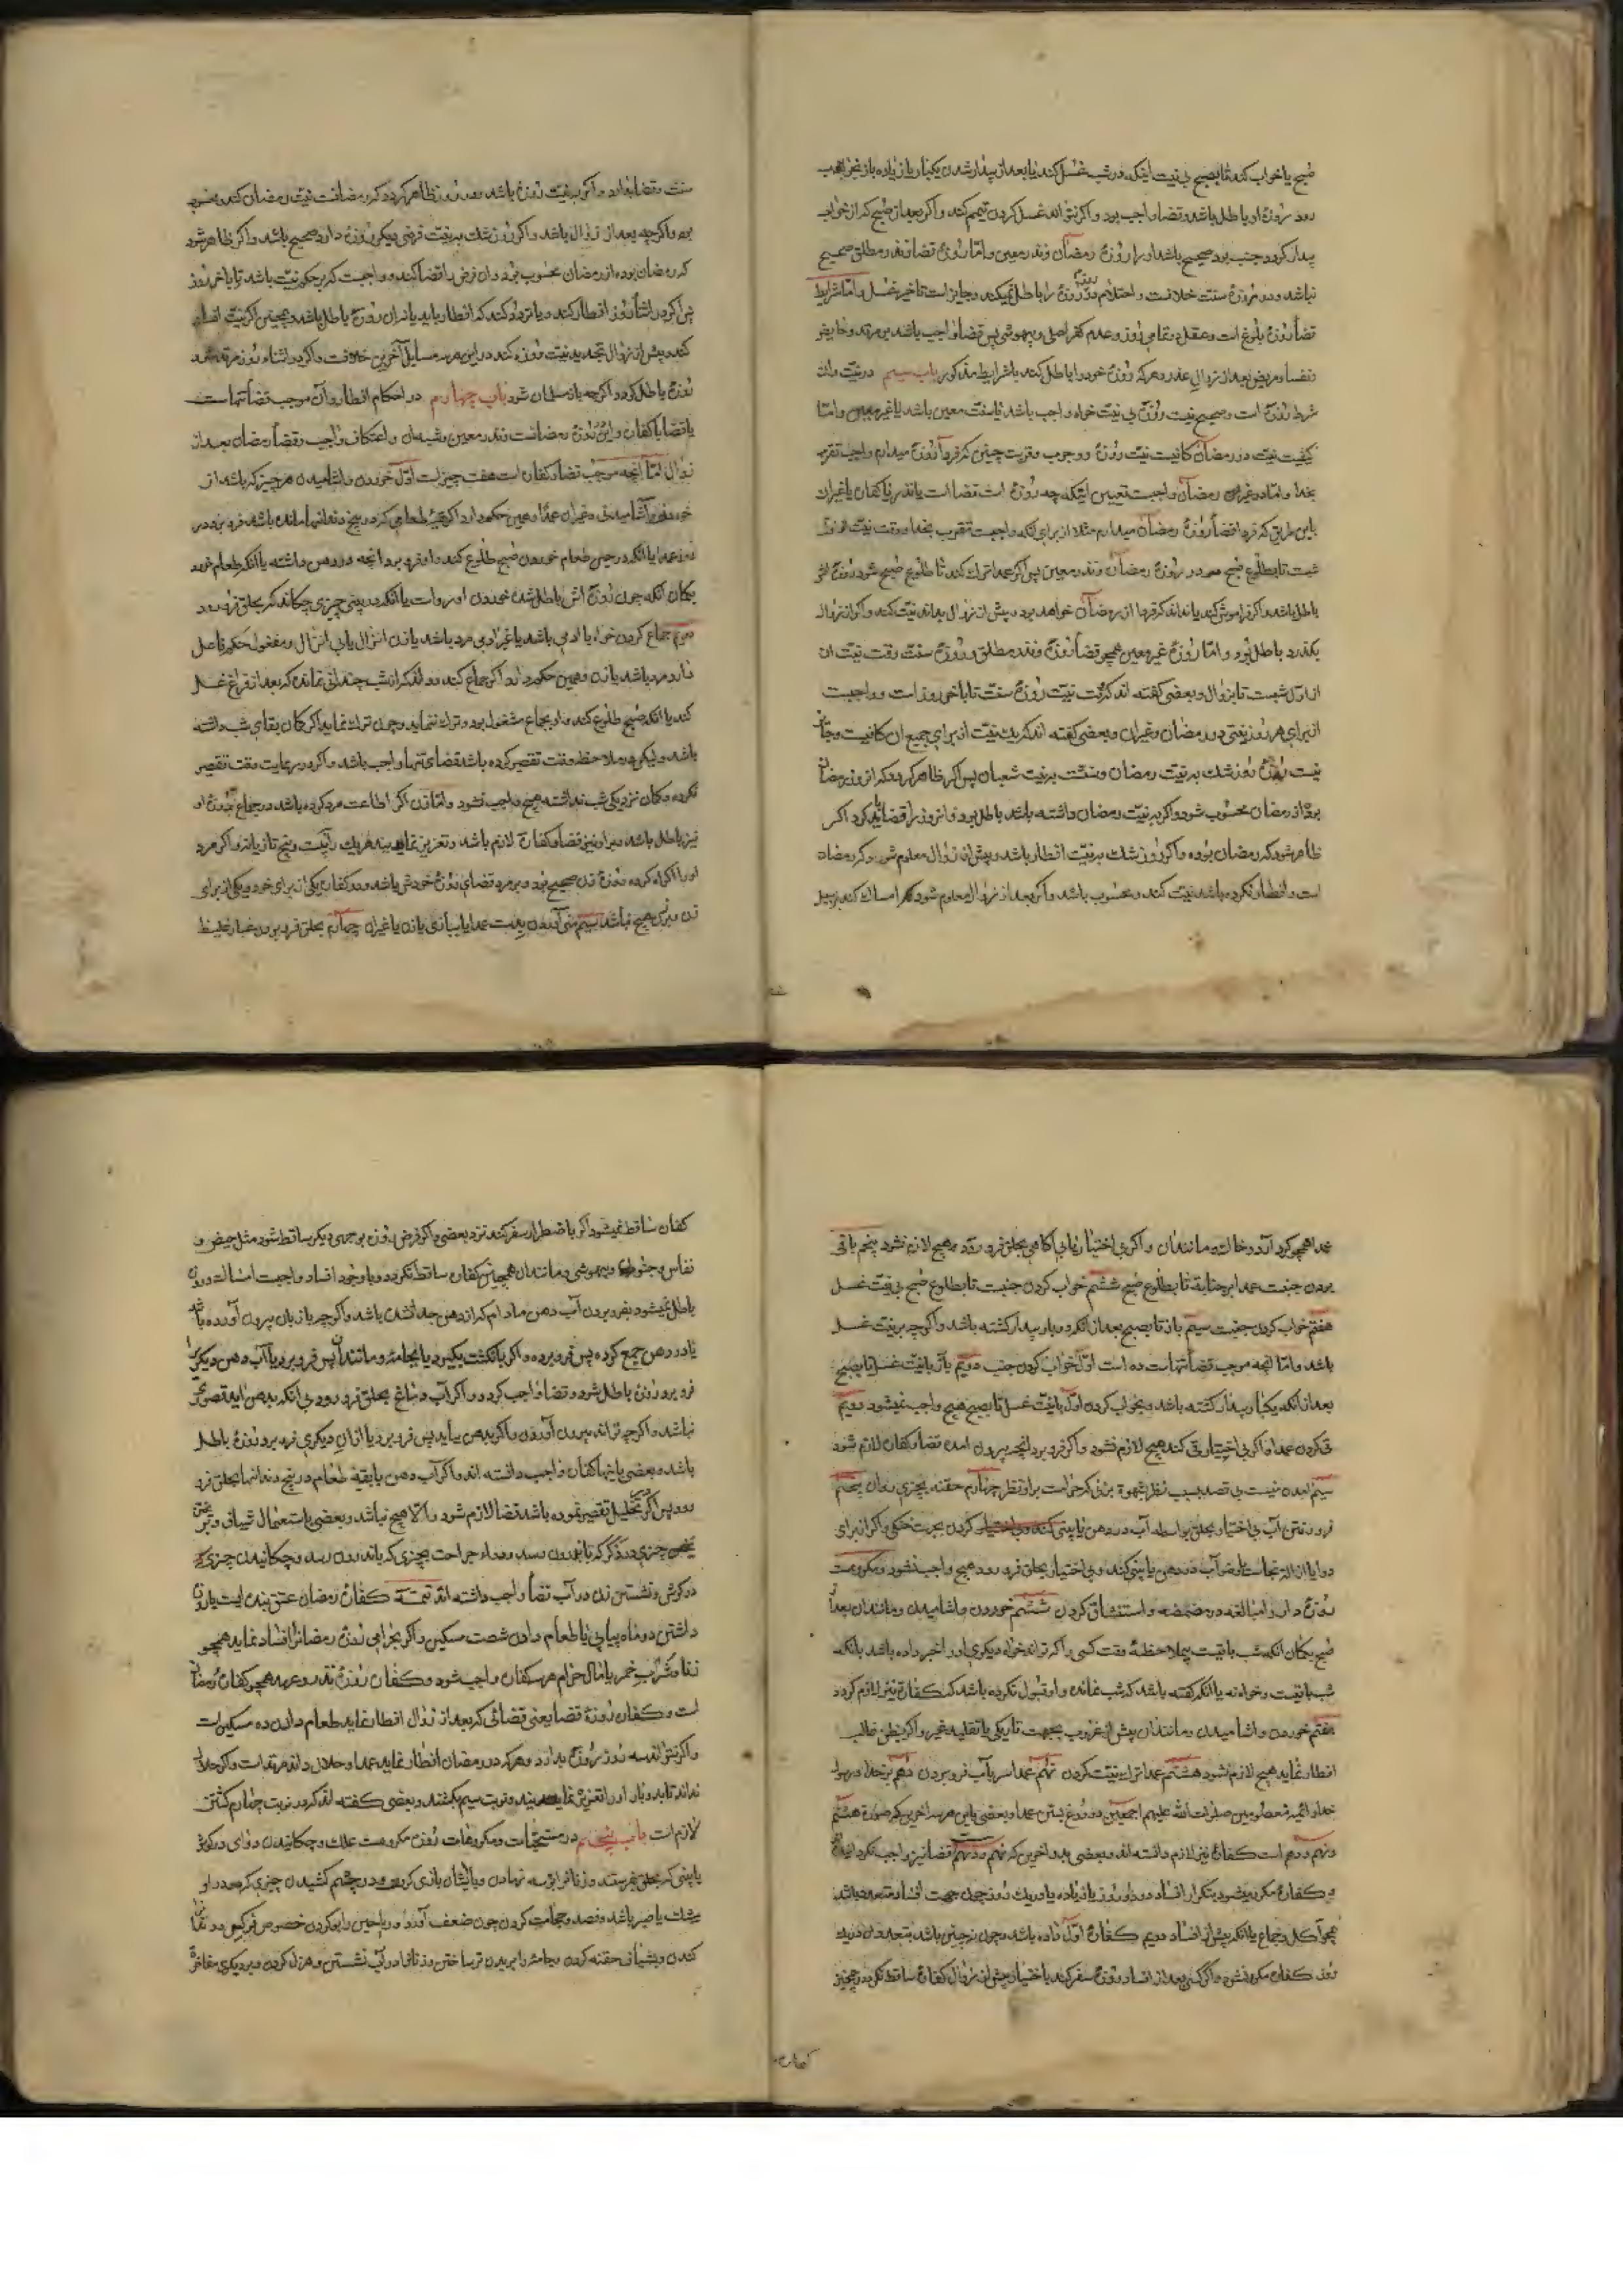 صبح یا خواب کند تا بصبح بی نیت اینکه در شب غسل کند یا بعد از بیدار شدن یکبار یا زیاده باز بخواب
رود روزهٔ او باطل باشد و قضا واجب بود و اکر نتواند غسل کردن تیمم کند و اکر بعد از صبح که از خواب
بیدار کردد جنب بود صحیح باشد او را روزهٔ رمضان و نذر معین و اما روزهٔ قضا و نذر مطلق صحیح
نباشد و در روزهٔ سنت خلافست و احتلام در روز روزهٔ را باطل نمیکند و جایز است تاخیر غسل و اما شرایط
قضاء روزهٔ بلوغ است و عقل در تمامی روز و عدم کفر اصلی و بیهوشی پس قضا واجب باشد بر مرتد و حایض
و نفسا و مریض بعد از زوال عذر و هر که روزهٔ خود را باطل کند با شرایط مذکور باب سیم در نیت و ان
شرط روزهٔ است و صحیح نیست روزهٔ بی نیت خواه واجب باشد یا سنت معین باشد یا غیر معین و اما
کیفیت نیت در رمضان کافیست نیت روزهٔ و وجوب و قربت چنین که فردا روزهٔ میدارم واجب تقرب
بخدا و اما در غیران رمضان واجبست تعیین اینکه چه روزهٔ است قضا است یا نذر یا کفاره یا غیران
باین طریق که فردا قضاء روزهٔ رمضان میدارم مثلا از برای انکه واجبست تقرب بخدا و وقت نیت از اول
شبست تا بطلوع صبح در روزهٔ رمضان و نذر معین پس اکر عمدا ترک کند تا طلوع صبح شود روزهٔ اش
باطل باشد و اکر فراموش کند یا نداند که فردا از رمضان خواهد بود پیش از زوال بداند نیت کند و اکر از زوال
بکذرد باطل بود و اما روزهٔ غیر معین همچو قضا روزهٔ و نذر مطلق و روزهٔ سنت وقت نیت ان
از اول شبست تا بزوال و بعضی کفته اند که وقت نیت روزهٔ سنت تا باخر روز است و واجبست
از برای هر روز نیتی در رمضان و غیران و بعضی کفته اند که یک نیت از برای جمیع ان کافیست و جایز
نیست روزهٔ روز شک به نیت رمضان و سنت بر نیت شعبان پس اکر ظاهر کردد که انروز رمضان
بود از رمضان محسوب شود و اکر بر نیت رمضان داشته باشد باطل بود و انروز را قضا باید کرد اکر
ظاهر شود که رمضان بوده و اکر روز شک بر نیت افطار باشد و پیش از زوال معلوم شود که رمضان
است و افطار نکرده باشد نیت کند و محسوب باشد و اکر بعد از زوال معلوم شود امساک کند بر سبیل
سنت و قضا بدارد و اکر بی نیت روزهٔ باشد در روز ظاهر کردد که رمضانست نیت رمضان کند و محسوب
بود و اکرچه بعد از زوال باشد و اکر روز شک بر نیت فرضی دیکر روزهٔ دارد صحیح باشد و اکر ظاهر شود
که رمضان بوده از رمضان محسوب بود و ان فرض را قضا کند و واجبست که بر حکم نیت باشد تا باخر روز
پس اکر در اثناء روز افطار کند و یا تردد کند که افطار باید یا نه ان روزهٔ باطل باشد و همچنین اکر نیت افطار
کند و پیش از زوال تجدید نیت روزه کند در این هر سه مسایل آخرین خلافست و اکر در اثناء روز مرتد شد
روزهٔ باطل کردد اکرچه باز مسلمان شود باب چهارم در احکام افطار و آن موجب قضا تنهاست
یا قضا با کفاره و این روزهٔ رمضانست و نذر معین و شبه ان و اعتکاف واجب و قضاء رمضان بعد از
زوال اما آنچه موجب قضا و کفاره است هفت چیز است اول خوردن و آشامیدن هر چیز که باشد از
خوردنی و آشامیدنی و غیران عمدا و همین حکم دارد اکر بقیهٔ طعامی که در بیخ دندانها مانده باشد فرو برد در
روز عمدا یا انکه در حین طعام خوردن صبح طلوع کند و او فرو برد انچه در دهن داشته یا انکه طعام خورد
بکمان انکه چون روزهٔ اش باطل شده خوردن او رواست یا انکه در بینی چیزی چکاند که بحلق فرو رود
دویم جماع کردن خواه با ادمی باشد یا غیر ادمی مرد باشد یا زن انزال یا بی انزال و مفعول حکم فاعل
دارد مرد باشد یا زن و همین حکم دارد اکر جماع کند و داند که از شب چندانی نمانده که بعد از فراغ غسل
کند یا انکه صبح طلوع کند و او بجماع مشغول بود و ترک ننماید و چون ترک نماید اکر کمان بقای شب داشته
باشد و لیکن در ملاحظه وقت تقصیر کرده باشد قضای تنها واجب باشد و اکر در رعایت وقت تقصیر
نکرده و کمان نزدیکی شب نداشته هیچ واجب نشود و اما زن اکر اطاعت مرد کرده باشد در جماع روزهٔ او
نیز باطل باشد و بر او نیز قضا و کفارهٔ لازم باشد و تعزیر نمایند هر یک را بیست و پنج تازیانه و اکر مرد
او را اکراه کرده روزهٔ زن صحیح بود و بر مرد قضای روزهٔ خودش باشد و دو کفاره یکی از برای خود و یکی از برای
زن و بر زن هیچ نباشد سیم منی آوردن بدست عمدا یا ببازی با زن یا غیران چهارم بحلق فرو بردن غبار غلیظ
عمدا همچو کرد آرد و خاک و مانند ان و اکر بی اختیار یا بی اکاهی بحلق فرو رود هیچ لازم نشود پنجم باقی
بودن جنب عمدا بر جنابة تا بطلوع صبح ششم خواب کردن جنب تا بطلوع صبح بی نیت غسل
هفتم خواب کردن جنب سیم بار تا بصبح بعد از انکه دو بار بیدار کشته باشد و اکرچه بر نیت غسل
باشد و اما انچه موجب قضا تنهاست ده است اول خواب کردن جنب دویم بار با نیت غسل تا بصبح
بعد از انکه یکبار بیدار کشته باشد و بخواب کردن اول با نیت غسل تا بصبح هیچ واجب نمیشود دویم
قی کردن عمدا و اکر بی اختیار قی کند هیچ لازم نشود و اکر فرو برد انچه بیرون امده قضا و کفاره لازم شود
سیم امدن منیست بی قصد بسبب نظر بشهوة بزنی که حرامست بر او نظر چهارم حقنه بچیزی روان پنجم
فرو رفتن آب بی اختیار بحلق بواسطه آب در دهن یا بینی کردن بجهت خنکی و اکر از برای
دوا یا ازالهٔ نجاست یا وضو آب در دهن یا بینی کند و بی اختیار بحلق فرو رود هیچ واجب نشود و مکروهست
روزهٔ دار را مبالغه در مضمضه و استنشاق کردن ششم خوردن و اشامیدن و مانند ان بعد از
صبح بکمان انکه شب باقیست بی ملاحظهٔ وقت کسی و اکر تواند خواه دیکری او را خبر داده باشد بانکه
شب باقیست و خواه نه یا انکه کفته باشد که شب نمانده و او قبول نکرده باشد که کفاره نیز لازم کردد
هفتم خوردن و اشامیدن و مانند ان پیش از غروب بجهت تاریکی یا تقلید غیر و اکر بظن غالب
افطار نماید هیچ لازم نشود هشتم عمدا ترک نیت کردن نهم عمدا سر باب فرو بردن دهم بر خدا و رسول
خدا و ائمهٔ معصومین صلوات الله علیهم اجمعین دروغ بستن عمدا و بعضی باین هر سه اخرین که صورة هشتم
و نهم و دهم است کفارهٔ نیز لازم دانسته اند و بعضی بدو اخرین که نهم و دهم قضا نیز واجب نکردانیده
و کفارهٔ مکرر میشود بتکرار افساد در دو روز یا زیاده یا در یک روز چون جهت افساد متعدد باشد
همچو اکل و جماع یا انکه پیش از افساد دویم کفارهٔ اول داده باشد و چون نه چنین باشد بتعدد ان در یک
روز کفاره مکرر نشود و اکر کسی بعد از افساد روزهٔ سفر کند باختیار پیش از زوال کفارهٔ ساقط نکردد و همچنین
کفاره ساقط نمیشود اکر باضطرار سفر کند نزد بعضی و اکر فرض روزه بوجهی دیکر ساقط شود مثل حیض و
نفاس و جنون و بیهوشی و مانند ان همچنین کفاره ساقط نکردد و با وجود افساد واجبست امساک و روزه
باطل نمیشود بفرو بردن آب دهن مادام که از دهن جدا نشده باشد و اکرچه با زبان بیرون آورده باشد
یا در دهن جمع کرده پس فرو برده و اکر بانکشت بکیرد یا بجامهٔ و مانند ان پس فرو برد یا آب دهن دیکری
فرو برد روزه باطل شود و قضا واجب کردد و اکر آب دماغ بحلق فرو رود بی انکه بدهن اید قصوری
نباشد و اکرچه تواند بیرون آوردن و اکر بدهن بیاید پس فرو برد یا از ان دیکری فرو برد روزهٔ باطل
باشد و بعضی باینها کفاره واجب دانسته اند و اکر آب دهن با بقیه طعام در بیخ دندانها بحلق فرو
رود پس اکر در تخلیل تقصیر نموده باشد قضا لازم شود و الا هیچ نباشد و بعضی باستعمال شیاف و ریختن
چیزی در ذکر که باندرون رسد و مداوا جراحت بچیزی که باندرون رسد و چکانیدن چیزی
در کوش و نشستن زن در آب قضا واجب داشته اند تتمه کفارهٔ رمضان عتق بنده ایست یا روزه
داشتن دو ماه پیاپی یا طعام دادن شصت مسکین و اکر بحرامی روزهٔ رمضان را افساد نماید همچو
زنا و شرب خمر یا مال حرام هر سه کفاره واجب شود و کفاره روزهٔ نذر و عهد همچو کفاره رمضان
است و کفاره روزهٔ قضا یعنی قضائی که بعد از زوال افطار نماید طعام دادن ده مسکین است
و اکر نتواند سه روز روزهٔ بدارد و هر که در رمضان افطار نماید عمدا و حلال داند مرتد است و اکر حلال
نداند تا بدو بار او را تعزیر نمایند و نوبت سیم بکشند و بعضی کفته اند که در نوبت چهارم کشتن
لازم است باب پنجم در مستحبات و مکروهات روزه مکروهست علک و چکانیدن دوای در کوش
یا بینی که بحلق نفرستد و زنان را بوسه نهادن و با ایشان بازی کردن و در چشم کشیدن چیزی که در او
مشک یا صبر باشد و فصد و حجامت کردن چون ضعف آورد و ریاحین را بو کردن خصوص نرکس و دندان
کندن و بشیاف حقنه کردن و جامهٔ را بر بدن تر ساختن و زنان را در آب نشستن و هزل کردن و بر دیکری مفاخرهٔ